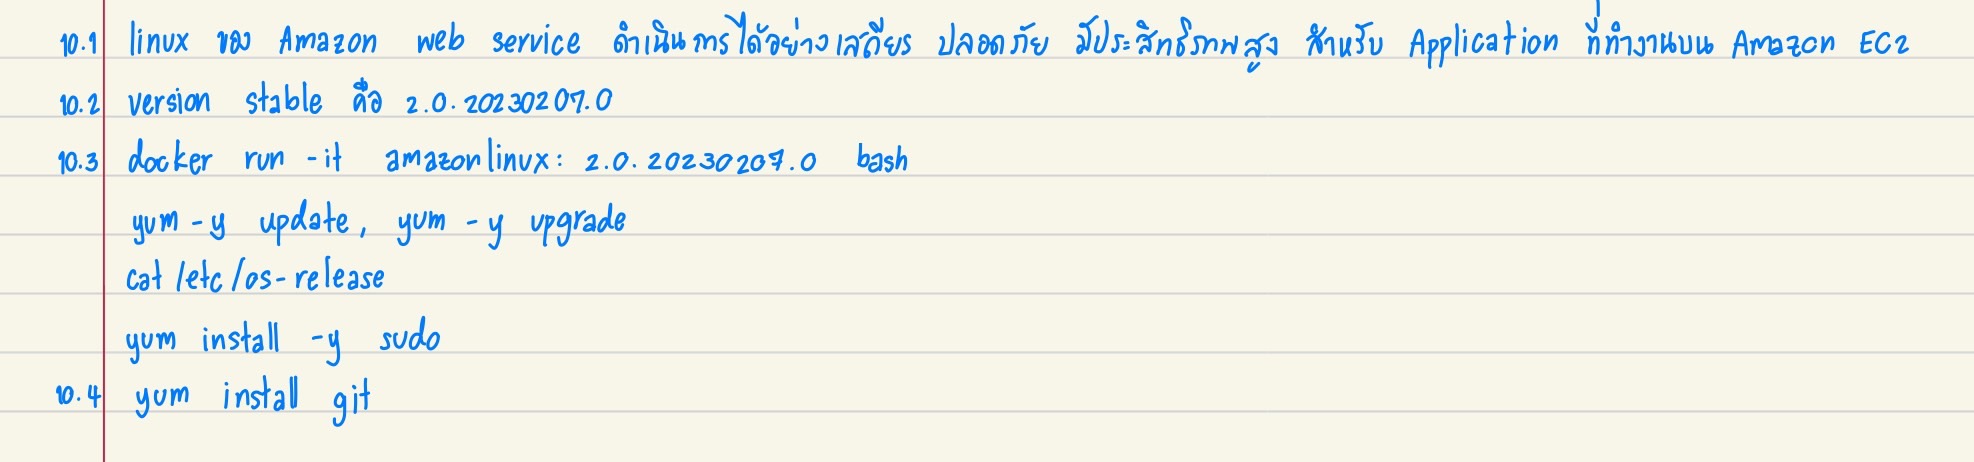 10.1 linux ของ Amazon web service ดำเนินการได้อย่างเสถียร ปลอดภัย มีประสิทธิภาพสูง สำหรับ Application ที่ทำงานบน Amazon EC2
10.2 version stable คือ 2.0.20230207.0
10.3 docker run -it amazonlinux: 2.0.20230207.0 bash
yum -y update, yum -y upgrade
cat /etc/os-release
yum install -y sudo
10.4 yum install git